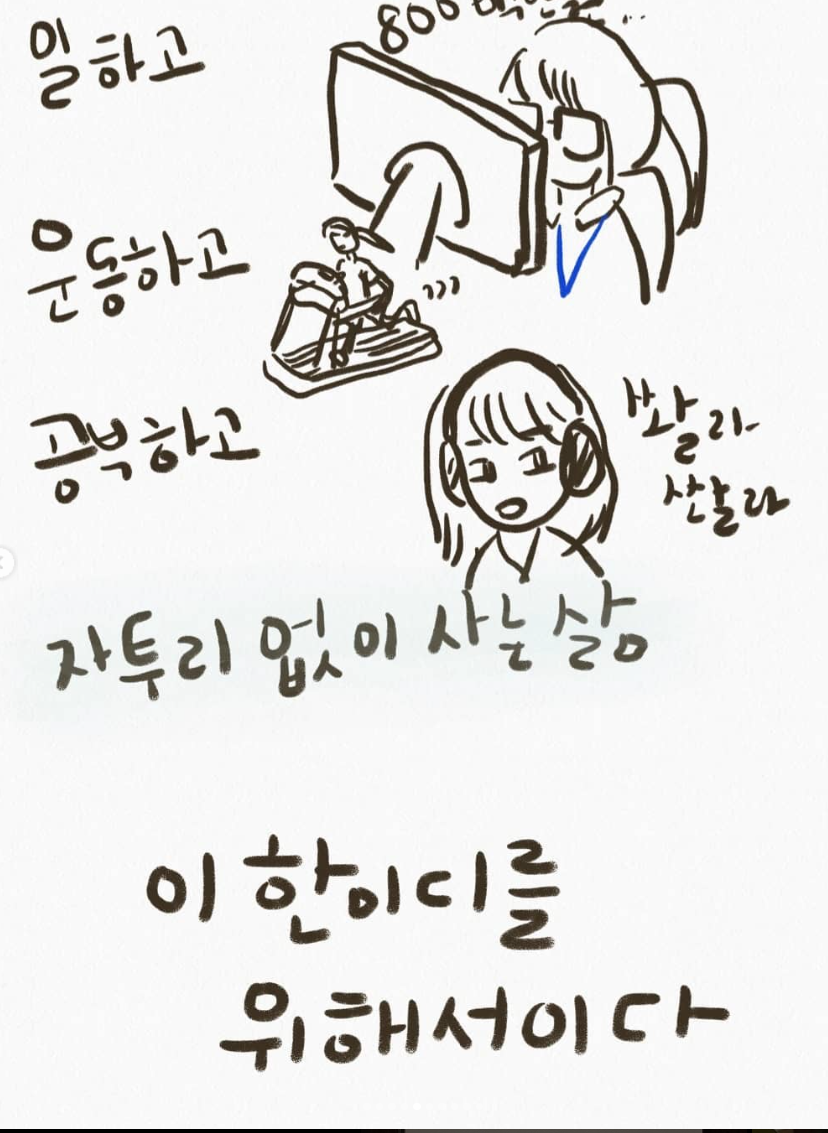 800
일하고
운동하고
공부하고
쏼라
솰라
자투리 없이 사는 삶
이 한마디를
위해서이다